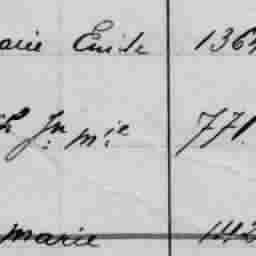 arie Emile 136
Jn mie 771
marie 142